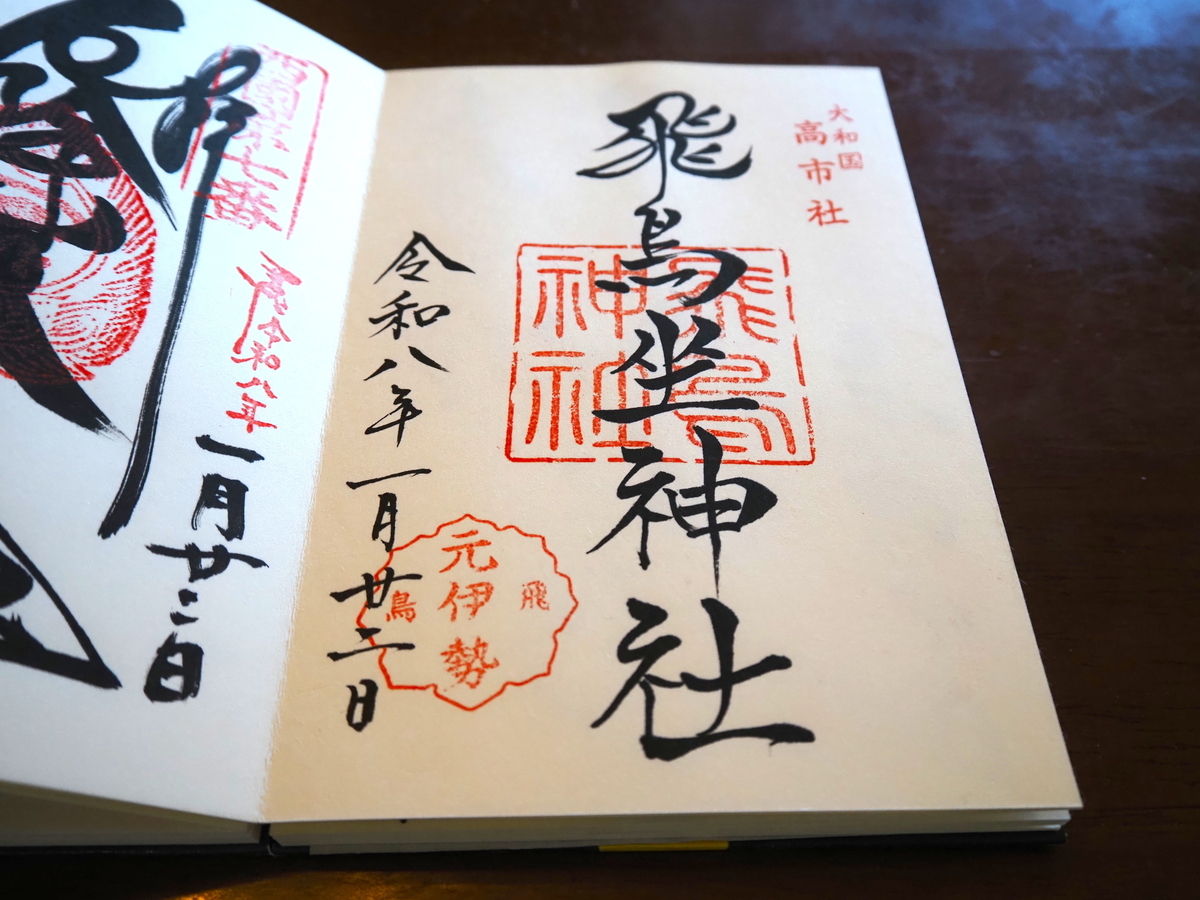 大和国
高市社
飛鳥坐神社
飛鳥
神社
令和八年一月廿二日
飛鳥
元伊勢
奉拝
令和八年
一月廿二日